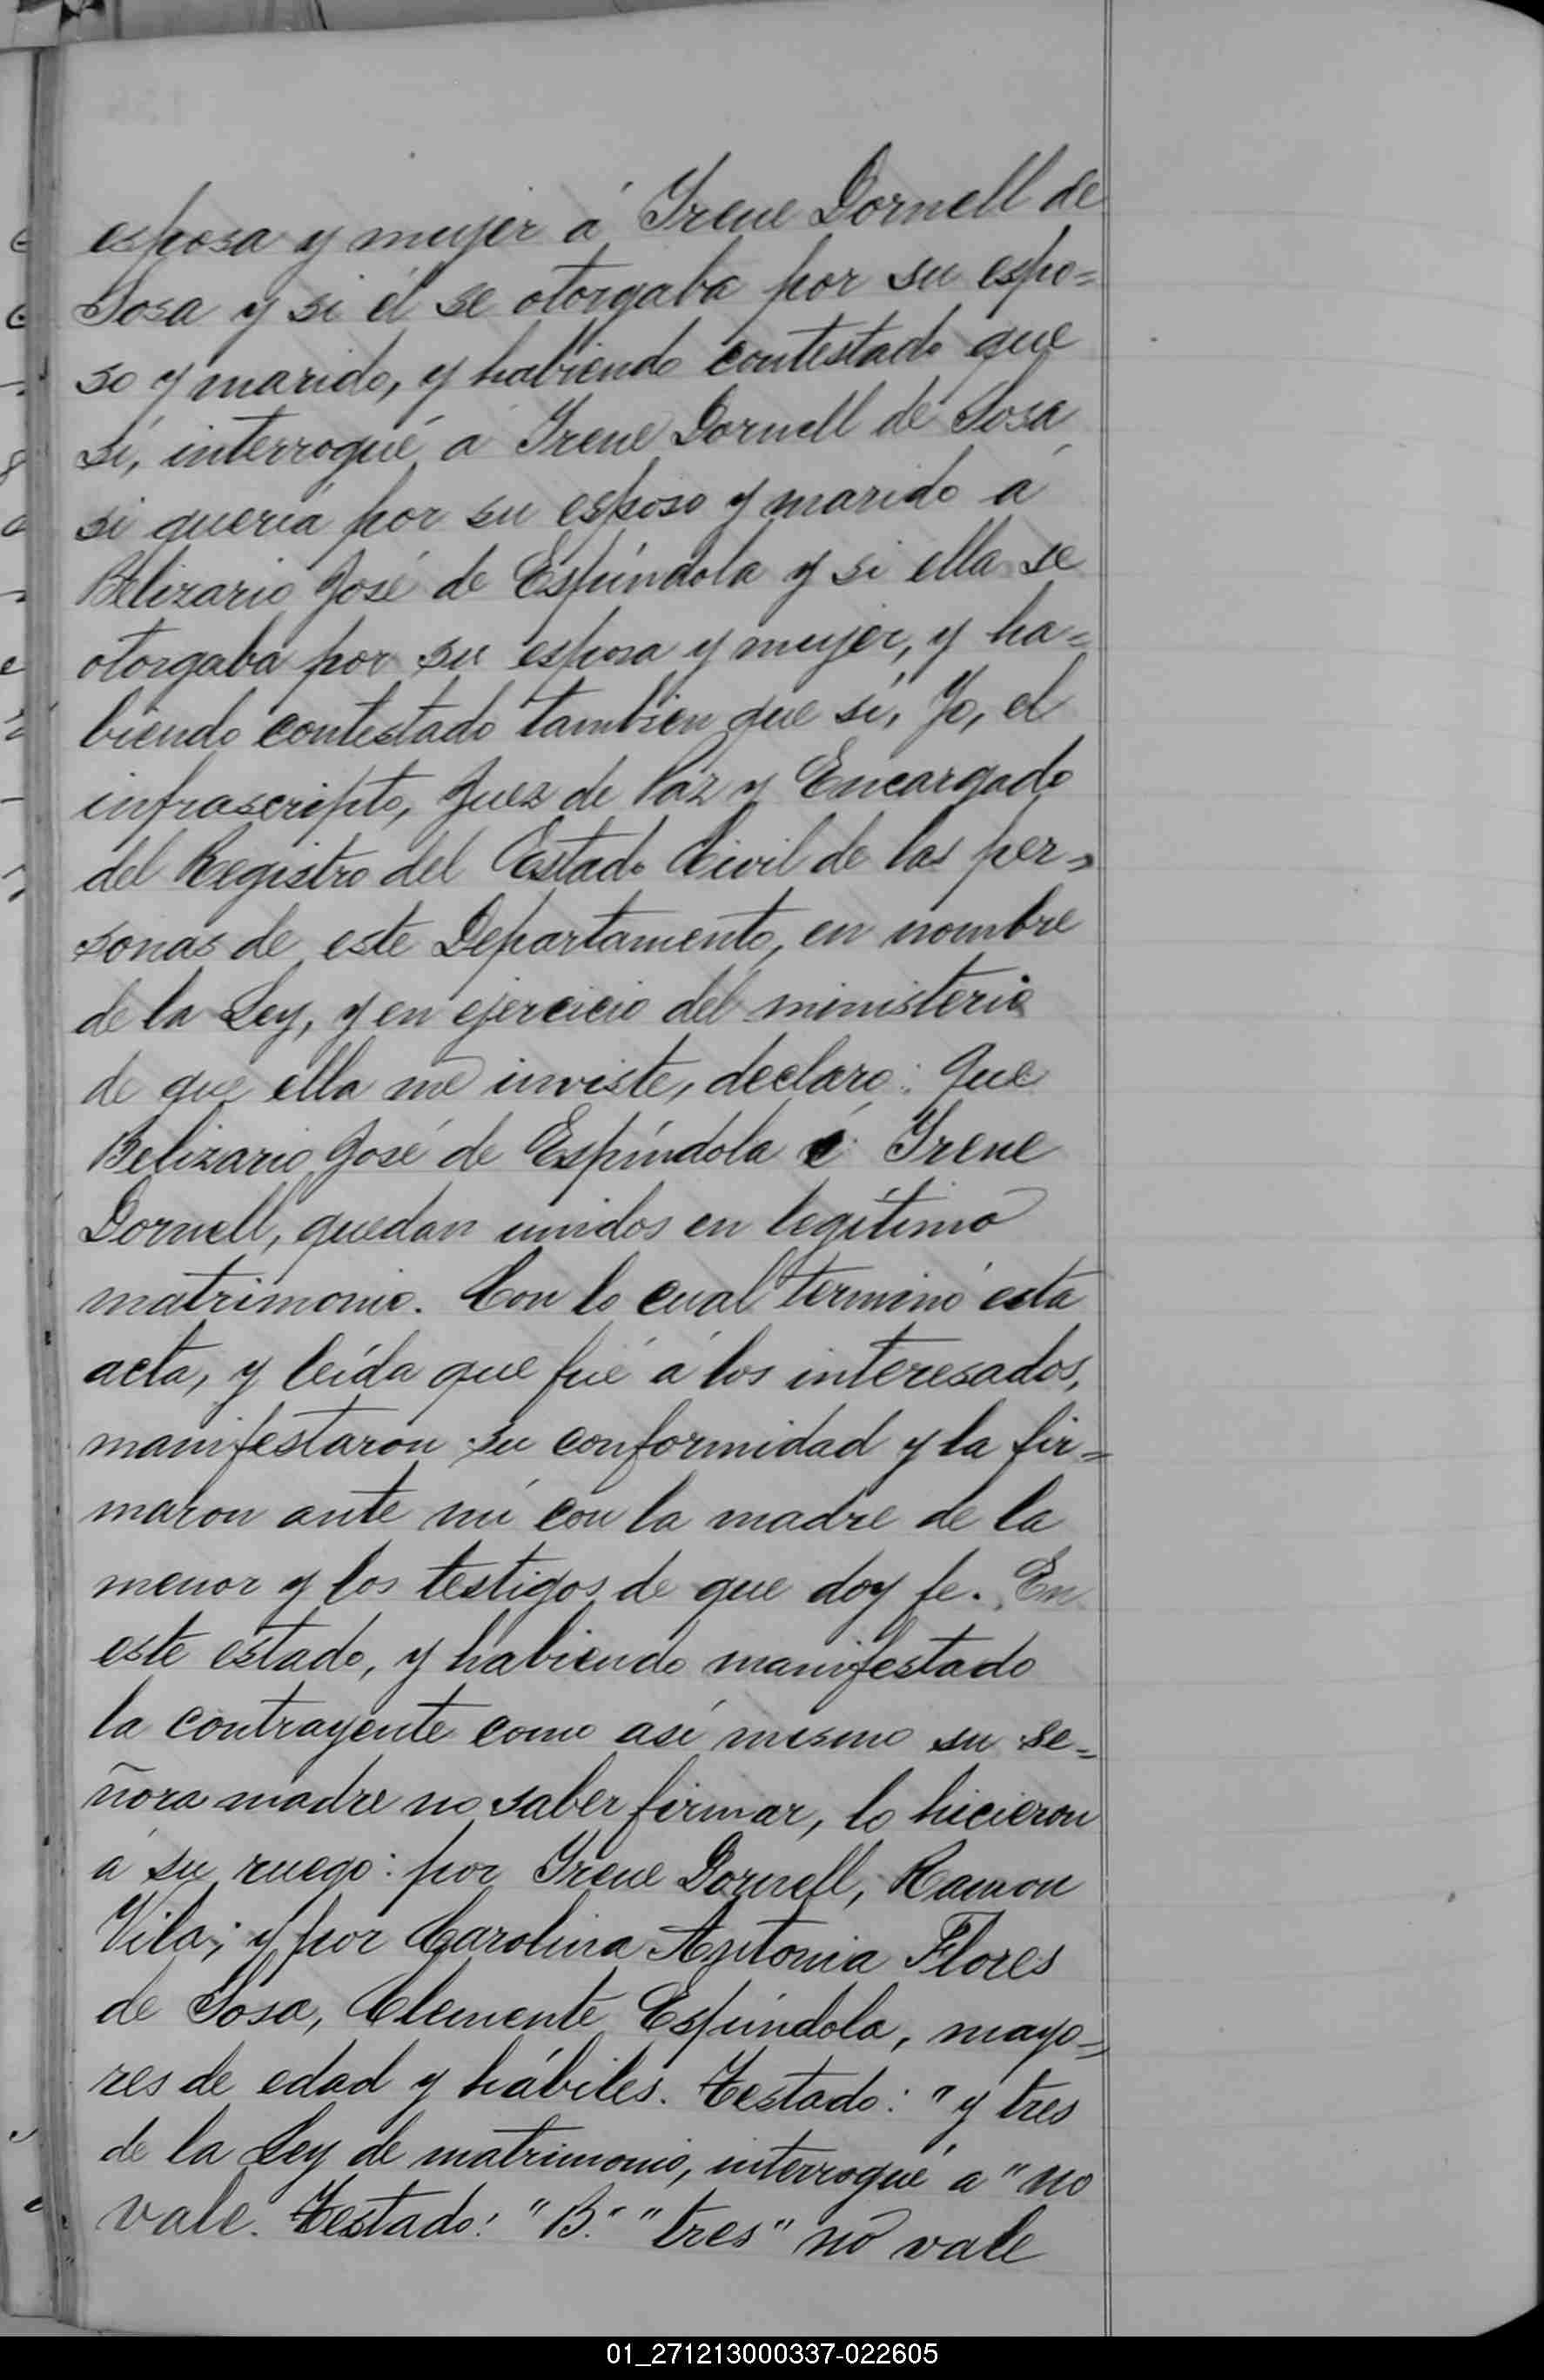 esposa y mujer á Irene Dornell de
Sosa y si él se otorgaba por su espo=
so y marido, y habiendo contestado que
sí, interrogué á Irene Dornell de Sosa
si quería por su esposo y marido á
Belizario José de Espíndola y si ella se
otorgaba por su esposa y mujer, y ha=
biendo contestado tambien que sí, Yo, el
infrascripto, Juez de Paz y Encargado
del Registro del Estado Civil de las per=
sonas de este Departamento, en nombre
de la Ley, y en ejercicio del ministerio
de que ella me inviste, declaro: Que
Belizario José de Espíndola é Irene
Dornell, quedan unidos en legítimo
matrimonio. Con lo cual terminó esta
acta, y leída que fué á los interesados,
manifestaron su conformidad y la fir=
maron ante mí con la madre de la
menor y los testigos de que doy fe. En
este estado, y habiendo manifestado
la contrayente como así mismo su se=
ñora madre no saber firmar, lo hicieron
á su ruego: por Irene Dornell, Ramon
Vila; y por Carolina Antonia Flores
de Sosa, Clemente Espíndola, mayo=
res de edad y hábiles. Testado: "y tres
de la Ley de matrimonio, interrogué a" no
vale. Testado: "B." "tres" no vale
01_271213000337-022605